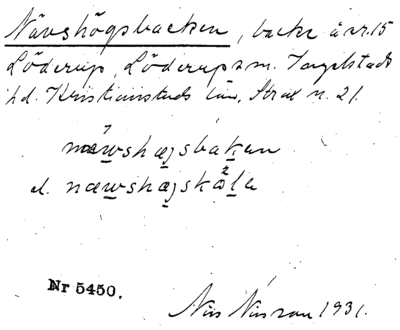 Nävshögsbacken, backe å nr. 15
Löderup, Löderups sn. Ingelstads
hd. Kristianstads län,
næwshøgsbakan
el. næwshøgskåla
Nr 5450.
Nils Nilsson 1931.